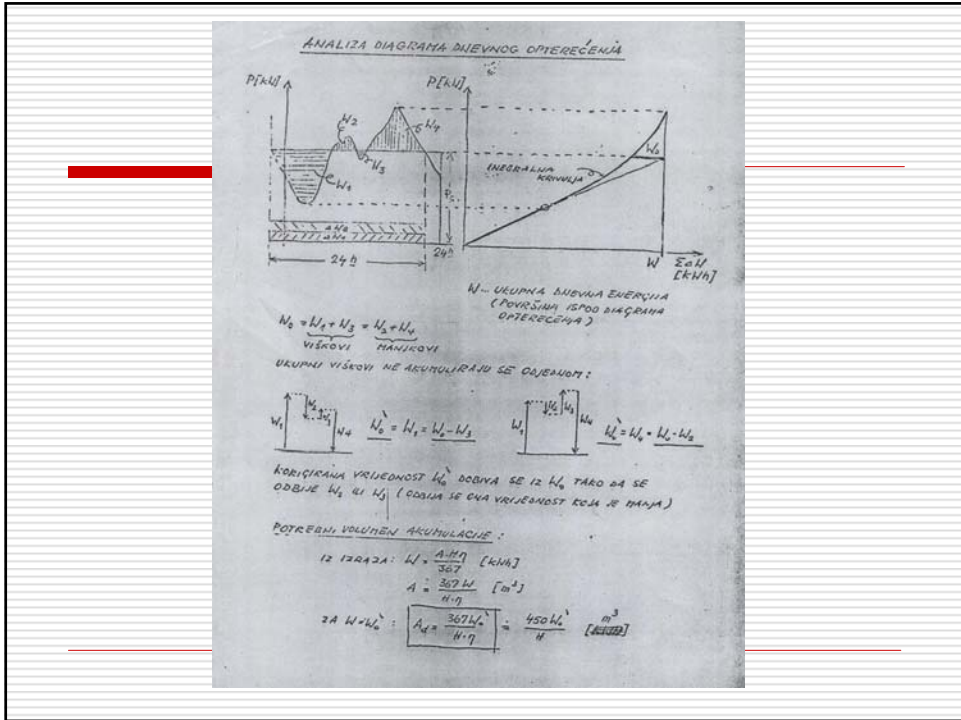 ANALIZA DIAGRAMA DNEVNOG OPTEREĆENJA
P[kW]
P[kW]
W2
W4
W3
W1
Ps
24h
24h
W0
INEGRALNA
KRIVULJA
W
ΣΔW
[kWh]
W... UKUPNA DNEVNA ENERGIJA
(POVRŠINA ISPOD DIAGRAMA
OPTEREĆENJA)
W0 = W1 + W3 = W2 + W4
VIŠKOVI MANJKOVI
UKUPNI VIŠKOVI NE AKUMULIRAJU SE ODJEDNOM:
W1 W2 W3 W4 W0` = W1 = W0 - W3
W1 W2 W3 W4 W0` = W4 = W0 - W2
KORIGIRANA VRIJEDNOST W0` DOBIVA SE IZ W0 TAKO DA SE
ODBIJE W2 ILI W3 (ODBIJA SE ONA VRIJEDNOST KOJA JE MANJA)
POTREBNI VOLUMEN AKUMULACIJE:
IZ IZRAZA: W = A·H·η / 367 [kWh]
A = 367 W / H·η [m³]
ZA W = W0` : Ad = 367 W0` / H·η = 450 W0` / H [m³]